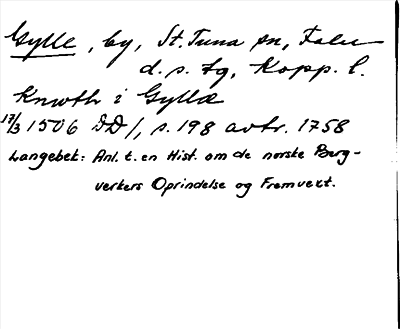 Gylle, by, St. Tuna sn, Falu
d. s. tg, Kopp. l.
Knwth i Gyllæ
17/3 1506 DD 1, s. 198 avtr. 1758
Langebek: Anl. t. en Hist. om de norske Berg-
verkers Oprindelse og Fremvext.